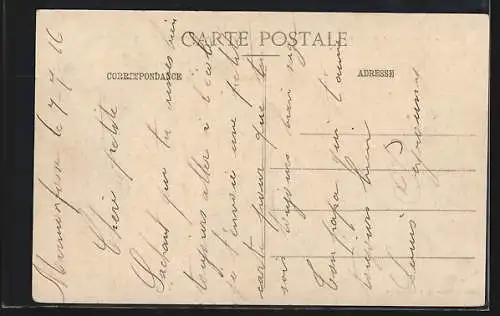 CARTE POSTALE
CORRESPONDANCE
ADRESSE
le 7-7-16
Chère petite
Sachant que tu aimes bien
toujours aller à l'école
je t'envoie une petite
carte pour que tu
sois toujours bien sage
Ton papa qui t'aime
toujours bien
Louis